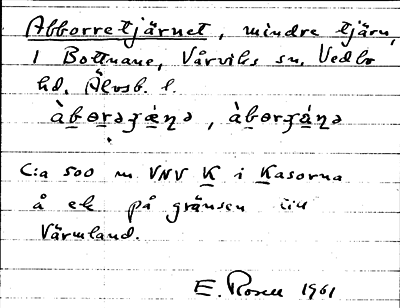 Abborretjärnet, mindre tjärn,
i Bottnane, Vårviks sn, Vedbo
hd, Älvsb. l.
àbərəʒæ̀ṇə, àbərʒáṇə
C:a 500 m VNV K i Kasorna
å ek på gränsen till
Värmland.
E. Rosell 1961